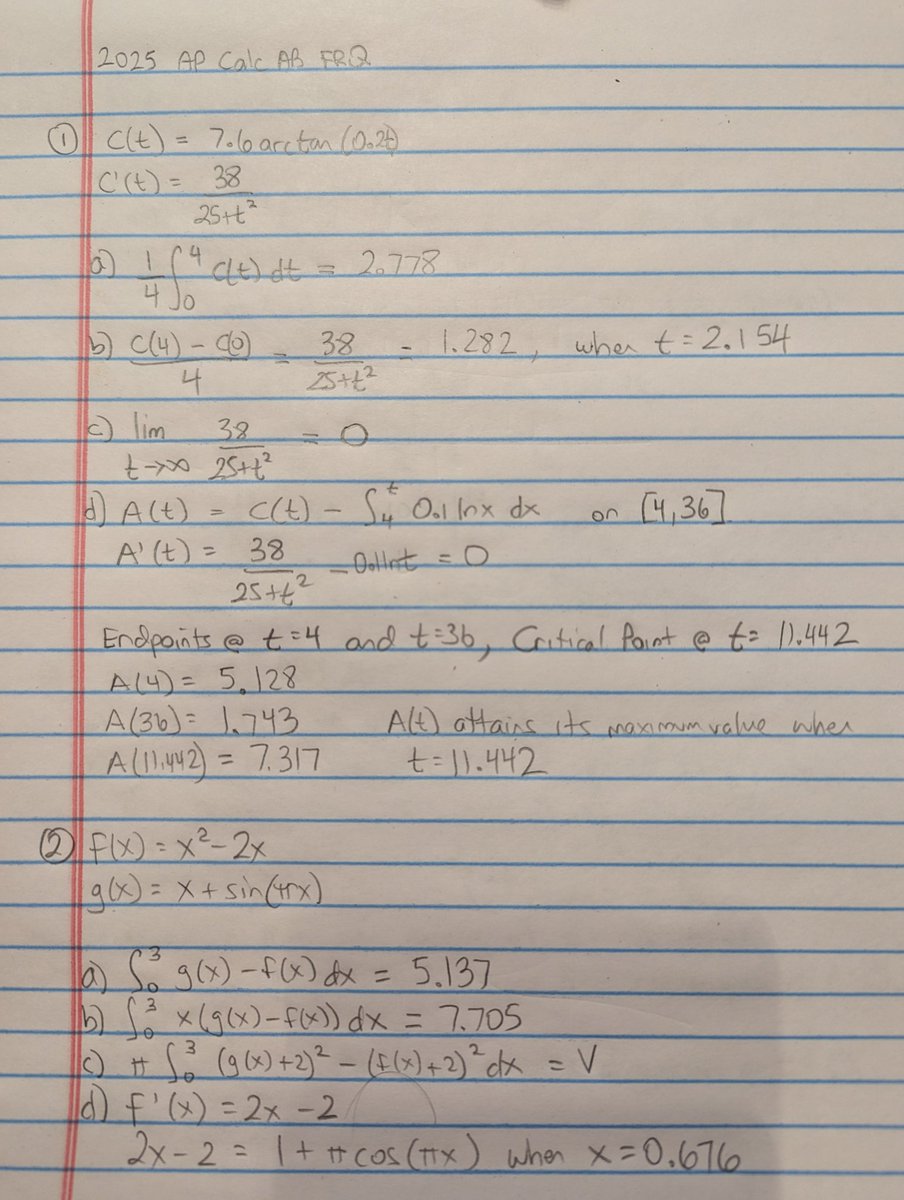 2025 AP Calc AB FRQ
① C(t) = 7.6 arctan (0.2t)
C'(t) = 38/(25+t²)
a) 1/4 ∫₀⁴ C(t) dt = 2.778
b) (C(4) - C(0))/4 = 38/(25+t²) = 1.282, when t = 2.154
c) lim t→∞ 38/(25+t²) = 0
d) A(t) = C(t) - ∫₄ᵗ 0.1 ln x dx on [4,36]
A'(t) = 38/(25+t²) - 0.1 ln t = 0
Endpoints @ t=4 and t=36, Critical Point @ t= 11.442
A(4) = 5.128
A(36) = 1.743 A(t) attains its maximum value when
A(11.442) = 7.317 t = 11.442
② f(x) = x² - 2x
g(x) = x + sin(πx)
a) ∫₀³ g(x) - f(x) dx = 5.137
b) ∫₀³ x(g(x) - f(x)) dx = 7.705
c) π ∫₀³ (g(x)+2)² - (f(x)+2)² dx = V
d) f'(x) = 2x - 2
2x - 2 = 1 + π cos(πx) when x = 0.676